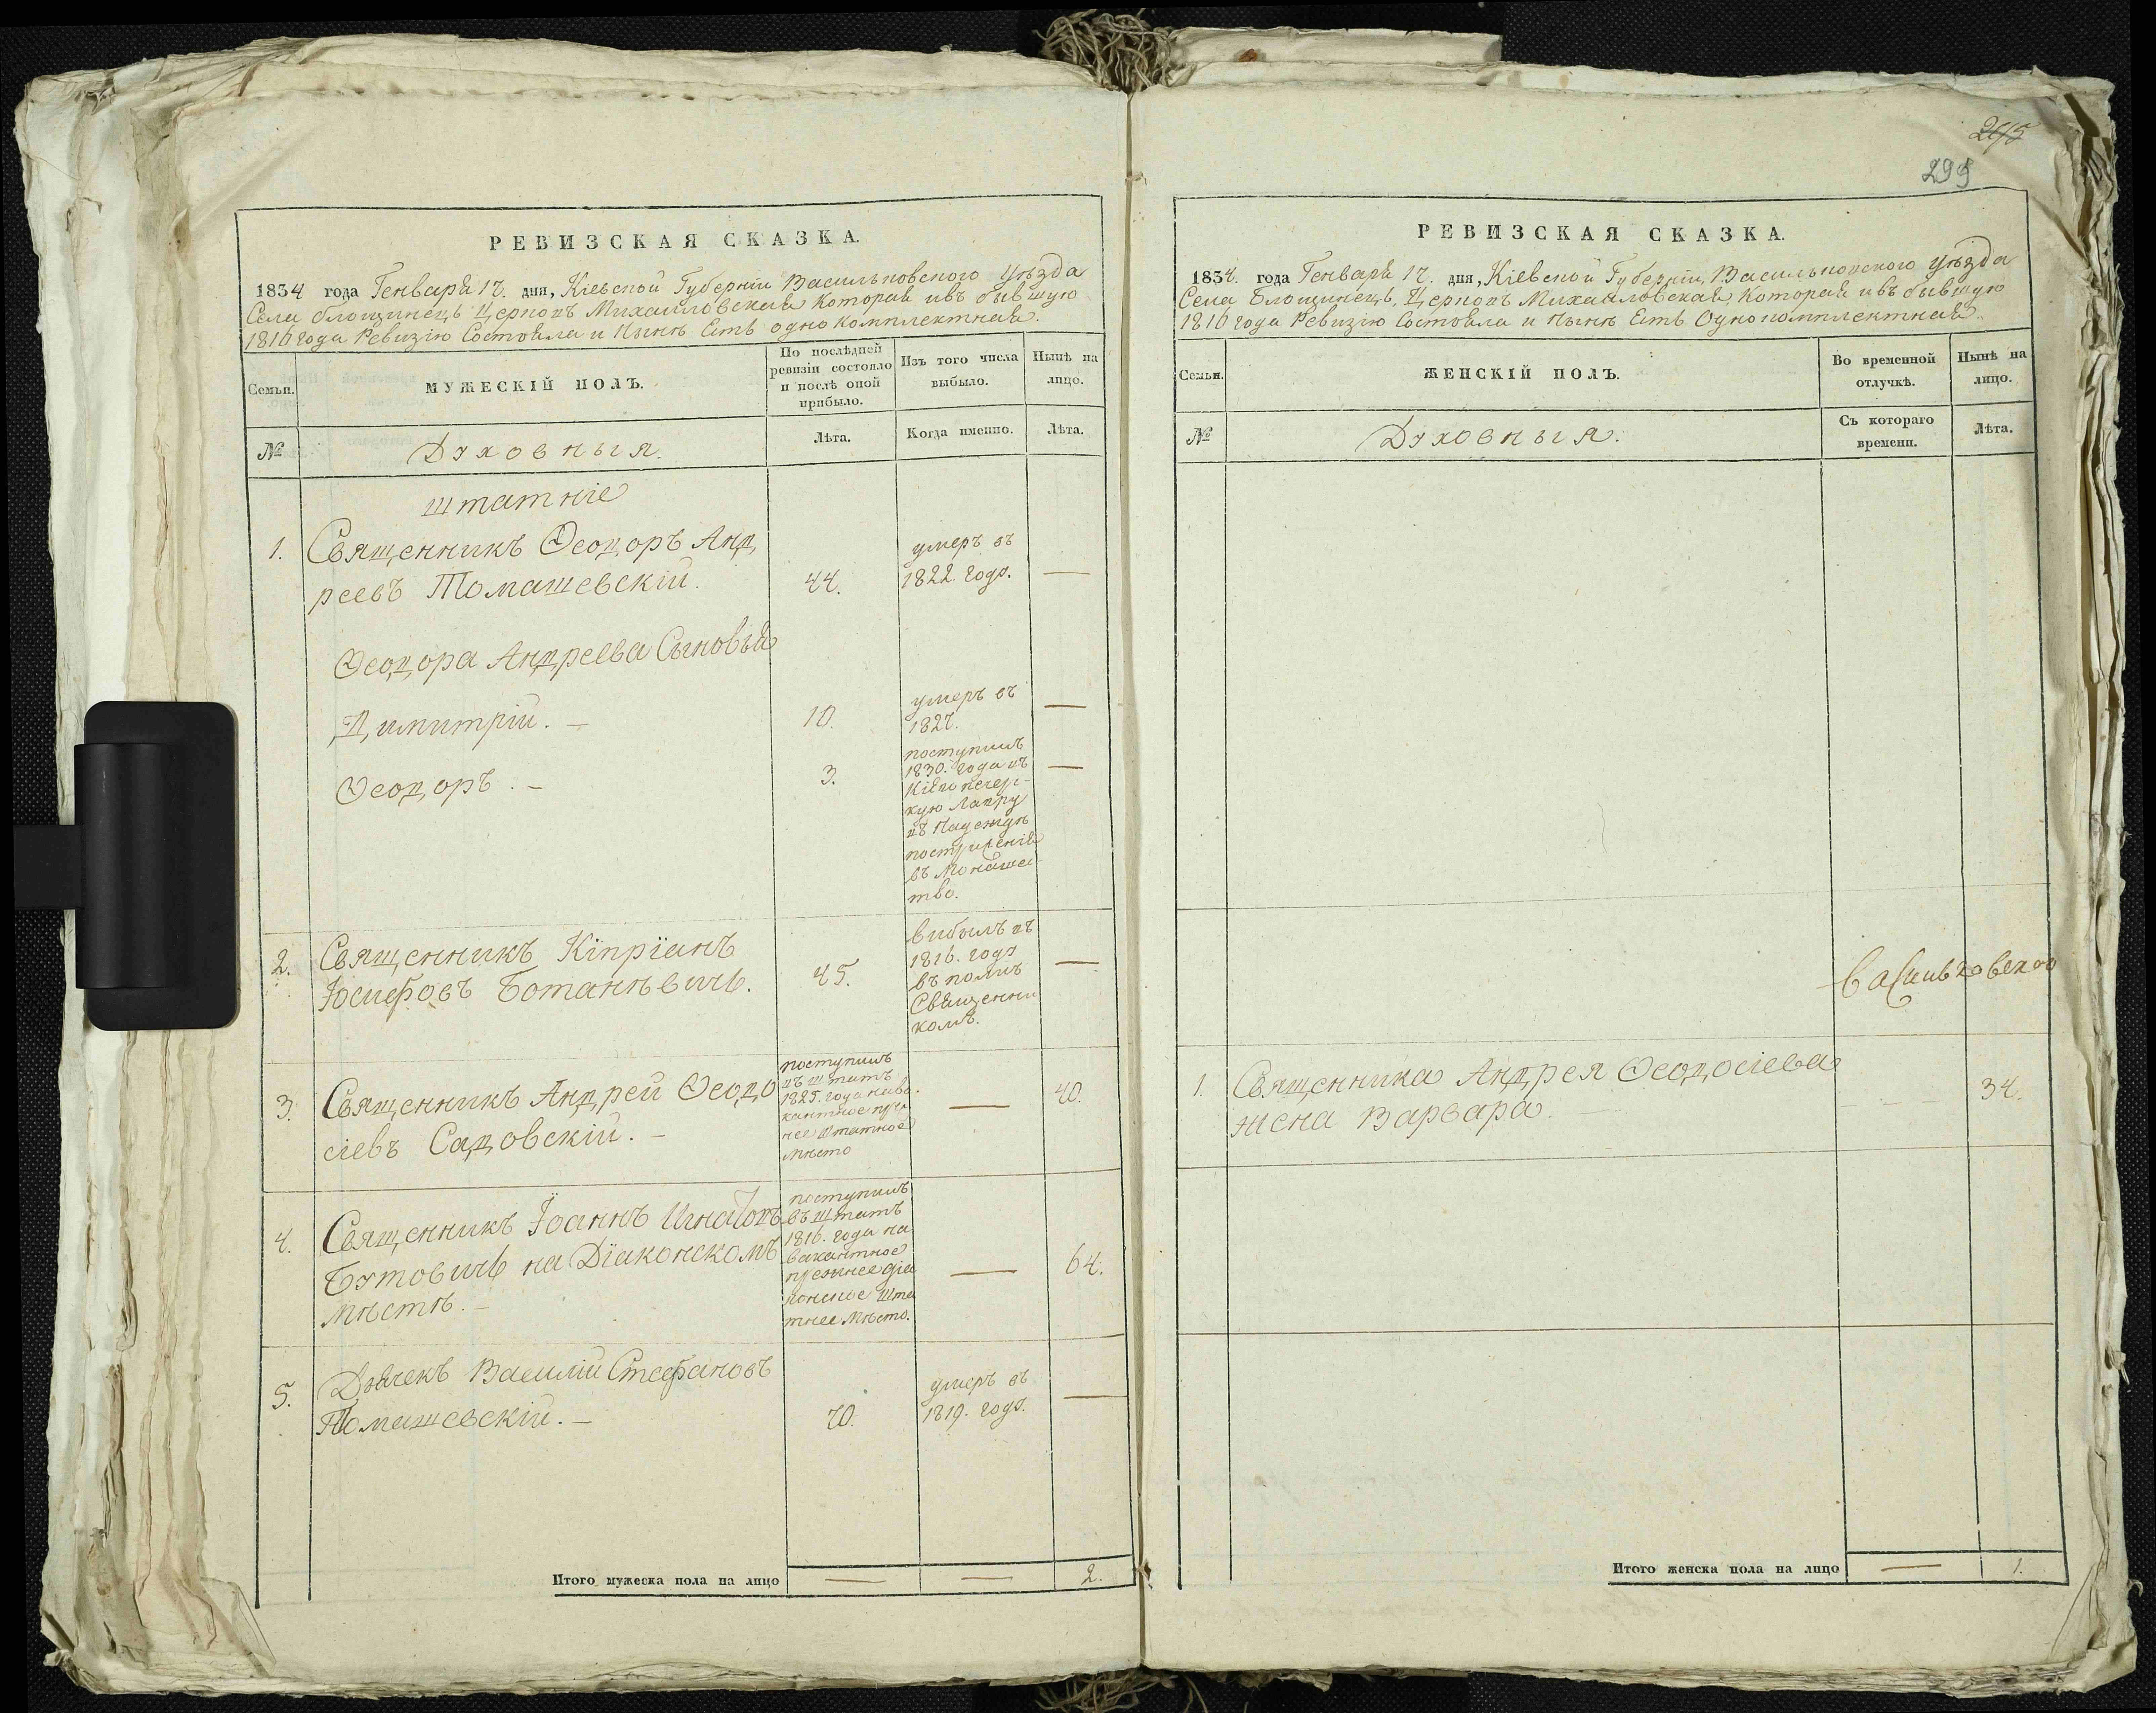 РЕВИЗСКАЯ СКАЗКА.
1834 года Генваря 17. дня, Кіевской Губерніи Васильковскаго Уѣзда
Села Блощинецъ Церковь Михайловская Которая и въ бывшую
1816 года Ревизію Состояла и Нынѣ Есть однокомплектная.
Семьи.
МУЖЕСКІЙ ПОЛЪ.
По послѣдней
ревизіи состояло
и послѣ оной
прибыло.
Изъ того числа
выбыло.
Нынѣ на
лицо.
№
Духовныя.
Лѣта.
Когда именно.
Лѣта.
штатніе
1. Священникъ Ѳеодоръ Анд
реевъ Томашевскій. 44. умеръ въ
1822. годѣ. —
Ѳеодора Андреева Сыновья
Димитрій. — 10. умеръ въ
1827. —
Ѳеодоръ. — 3. поступилъ
1830. года въ
Кіево печерс-
кую Лавру
въ Надеждѣ
постриженія
въ Монашес
тво. —
2. Священникъ Кіпріанъ
Іосифовъ Ботанѣвичь. 45. выбылъ въ
1816. годѣ
въ полкъ
Священни
комъ. —
3. Священникъ Андрей Ѳеодо
сіевъ Садовскій. — поступилъ
въ штатъ
1825. года на ва
кантное преж
нее штатное
мѣсто — 40.
4. Священникъ Іоаннъ Игнатовъ
Бутовичь на Діаконскомъ
мѣстѣ. — поступилъ
въ штатъ
1816. года на
вакантное
прежнее діа
конское шта
тнее мѣсто. — 64.
5. Дьячекъ Василій Стефановъ
Томашевскій. — 70. умеръ въ
1819. годѣ. —
Итого мужеска пола на лицо — — 2.
295
РЕВИЗСКАЯ СКАЗКА.
1834. года Генваря 17. дня, Кіевской Губерніи, Васильковского Уѣзда
Села Блощинецъ, Церковь Михайловская, Которая и въ бывшую
1816 года Ревизію Состояла и Нынѣ Есть Однокомплектная.
Семьи.
ЖЕНСКІЙ ПОЛЪ.
Во временной
отлучкѣ.
Нынѣ на
лицо.
№
Духовныя.
Съ котораго
времени.
Лѣта.
Васильковского
1. Священника Андрея Ѳеодосіева
жена Варвара. — — — 34.
Итого женска пола на лицо — 1.